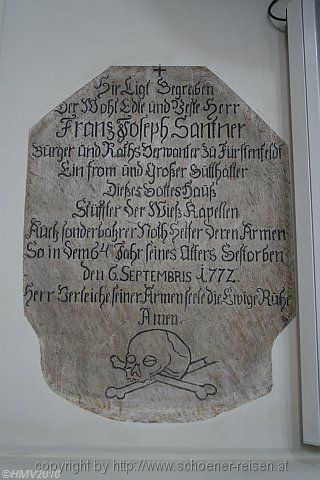 Hir Ligt Begraben
Der Wohl Edle und Veste Herr
Franz Joseph Santner
Bürger und Raths Verwanter zu Fürstenfeldt
Ein from und Großer Gutthätter
Dießes Gottes Hauß
Stüffter der Wieß Kapellen
Auch sonderbahrer Noth Helfer deren Armen
So in dem 64 Jahr seines Alters Gestorben
den 6. Septembris 1772.
Herr Verleiche seiner Armen seele die Ewige Ruhe
Amen.
©HMV2016
copyright by http://www.schoener-reisen.at